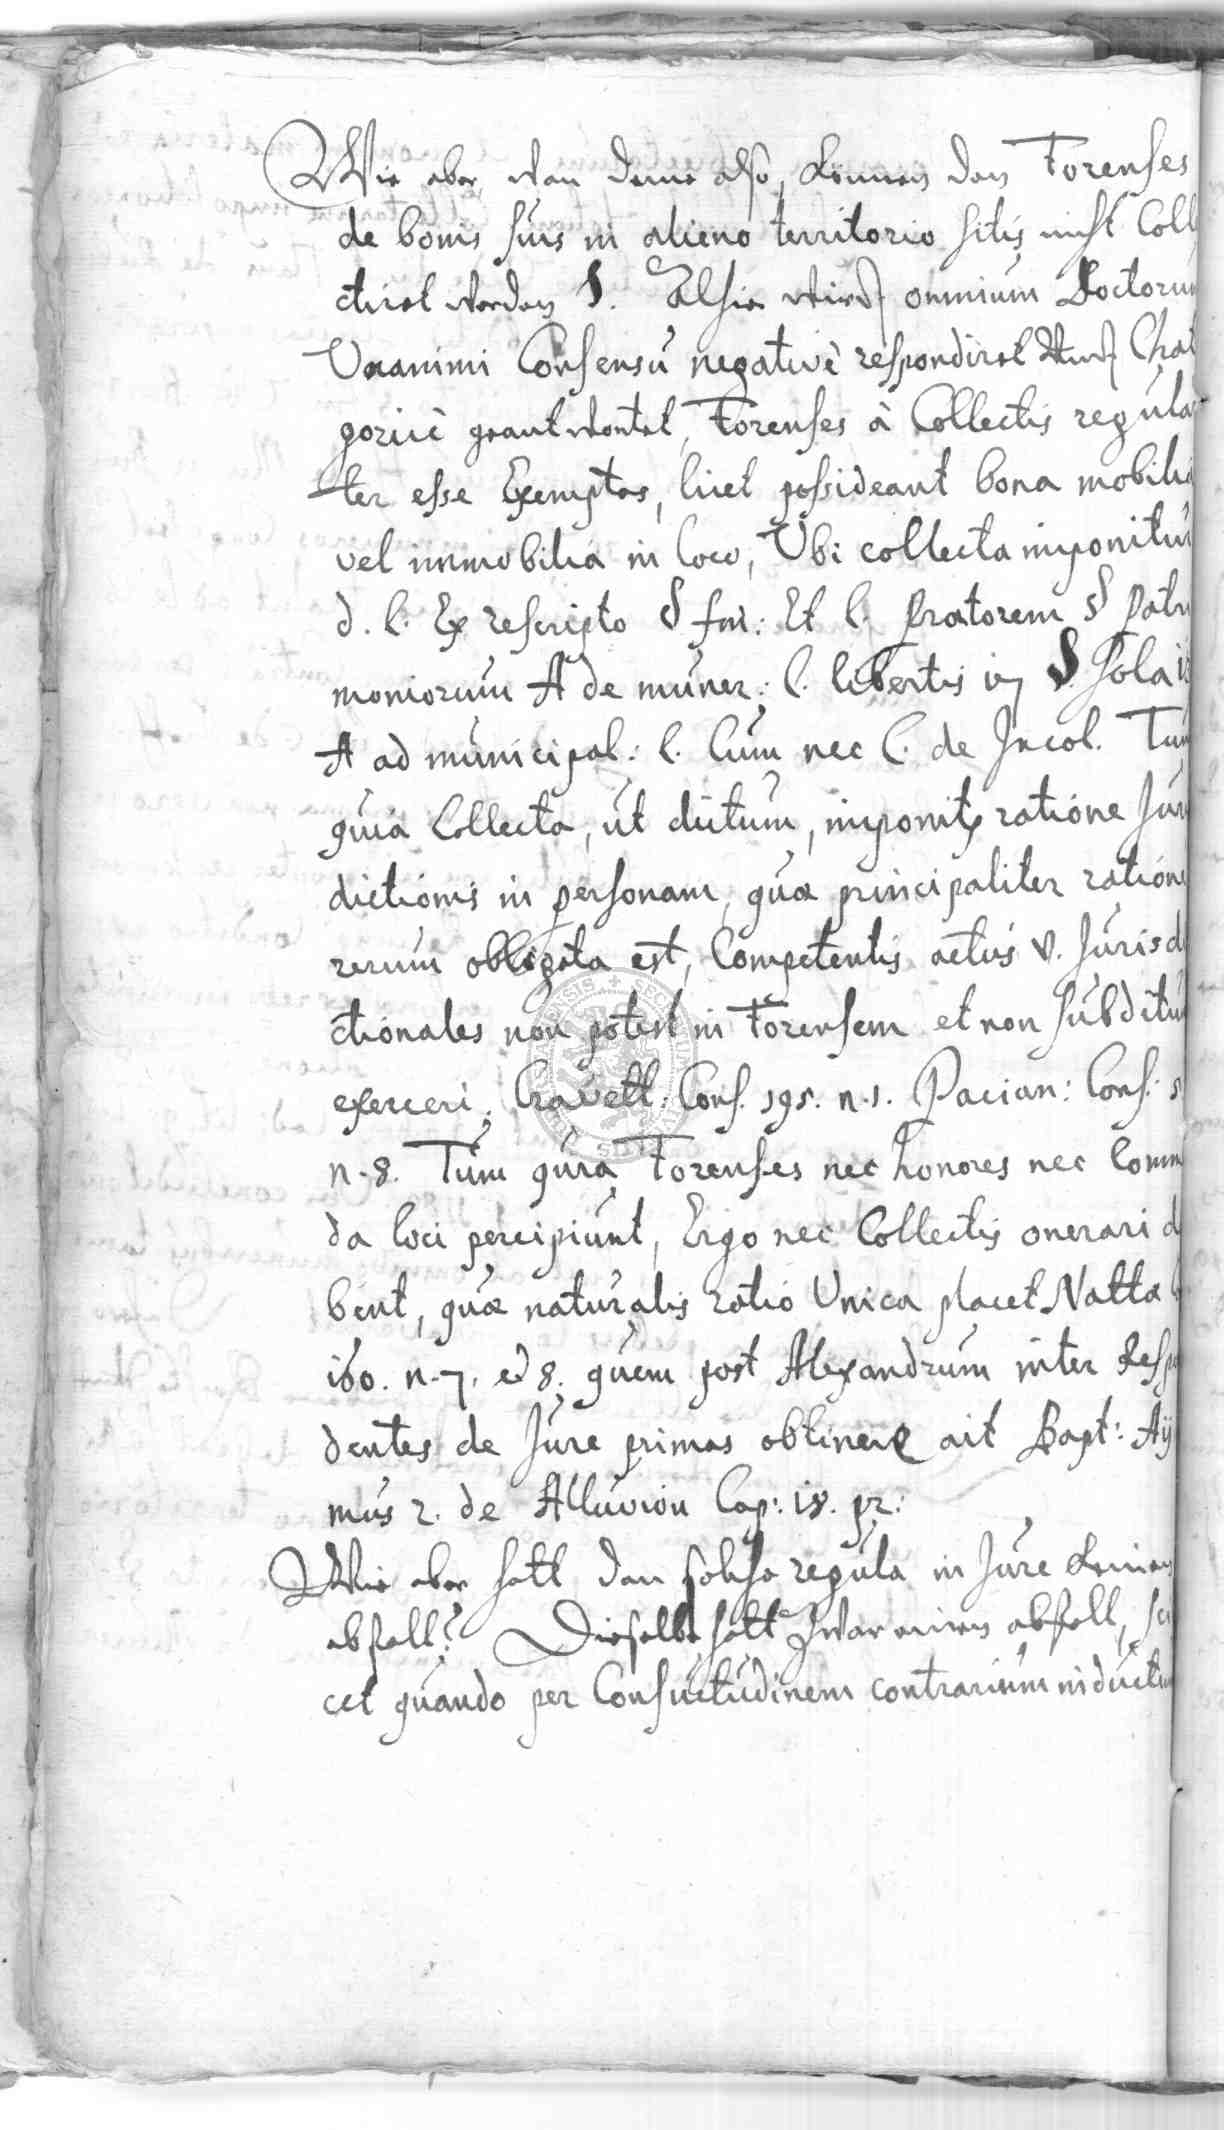 Wie aber wan deme also, können dan Forenses
de bonis suis in alieno territorio sitis nicht Coll
ctiret werden §. Alhie wird omnium Doctorum
Unanimi Consensu negativè respondiret Und Chat
goricè geantwortet, Forenses à Collectis regular
ter esse Exemptos, licet possideant bona mobilia
vel immobilia in loco, Ubi collecta imponitur
d. l. Ex rescripto § fin: Et l. Prætorem § Patri
moniorum ff de muner: l. libertis 17 §. Sola
ff ad municipal: l. Cum nec C. de Incol. Tum
quia Collecta, ut dictum, imponitr ratione Juris
dictionis in personam, quæ principaliter ratione
rerum obligata est, Competentis actus v. Jurisdi
ctionales non potest in Forensem et non subditum
exerceri. Cravett: Cons. 595. n. 1. Pacian: Cons:
n. 8. Tum quia Forenses nec honores nec Comm
da loci percipiunt, Ergo nec Collectis onerari d
bent, quæ naturalis ratio Unica placet Nattæ
160. n. 7. et 8. quem post Alexandrum inter Resp
dentes de Jure primas obtinere ait Bapt: Ay
mus 2. de Alluvion Cap: 18. pr:
Wie aber hatt dan solche regula in Jure keinen
abfall? Dieselbe hatt zwar einen abfall, sci
cet quando per Consuetudinem contrarium inductum